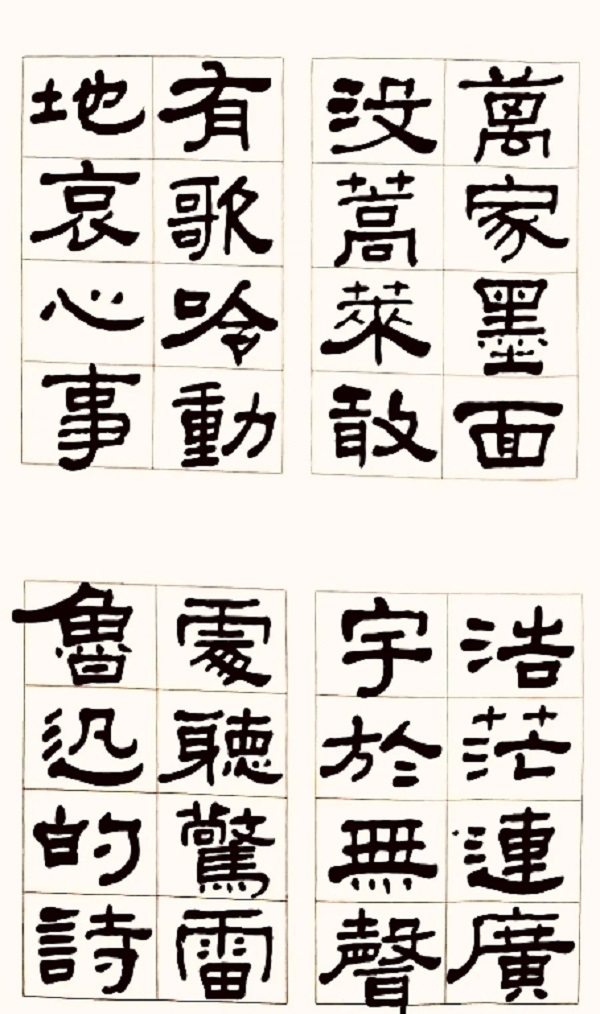 萬家墨面
没蒿萊敢
有歌吟動
地哀心事
浩茫連廣
宇於無聲
處聽驚雷
魯迅的詩